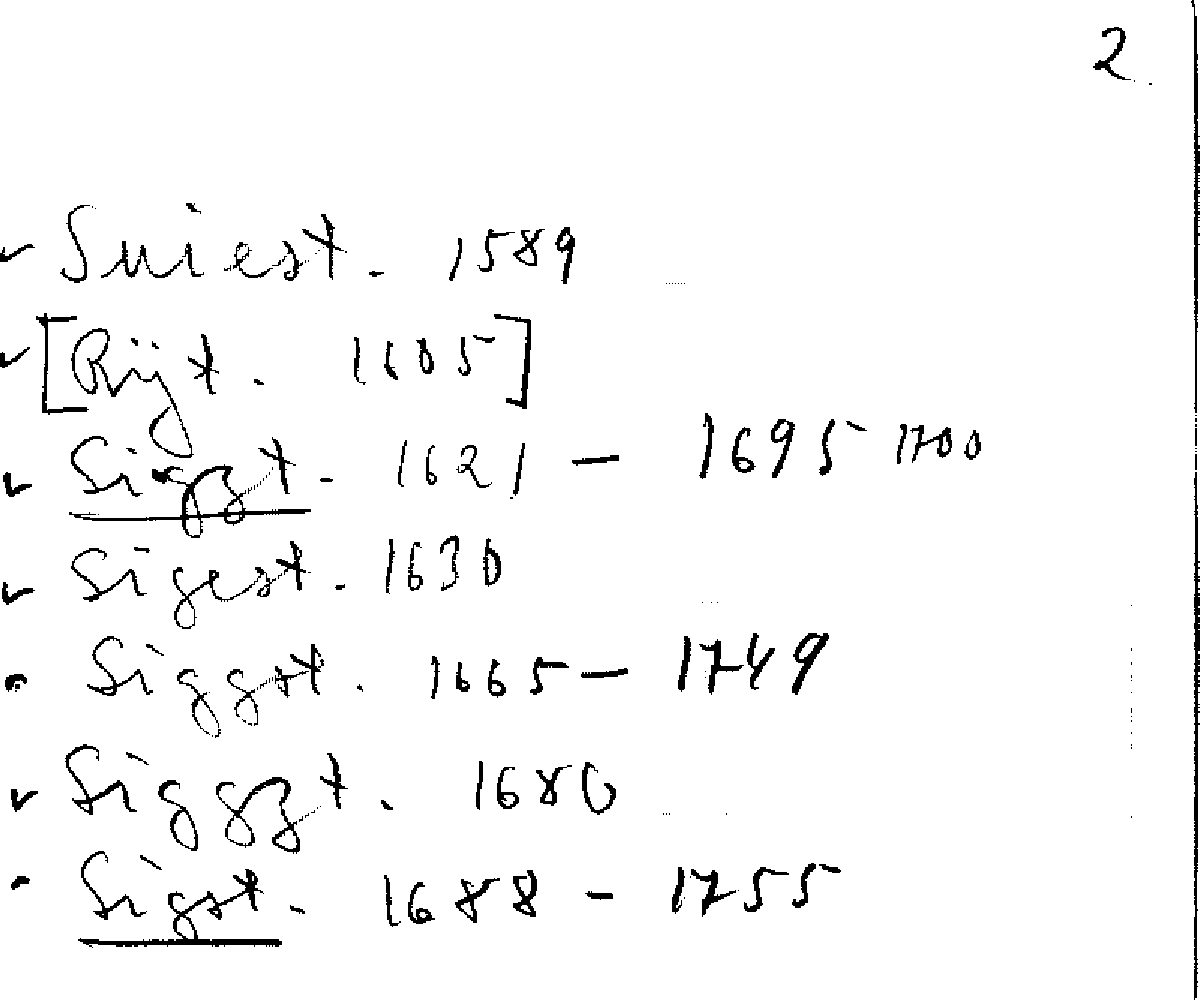 2.
Suiest. 1589
[Rijt. 1605]
Siggt. 1621 - 1695 1700
Sigest. 1630
Siggst. 1665 - 1749
Siggzt. 1680
Sigst. 1688 - 1755